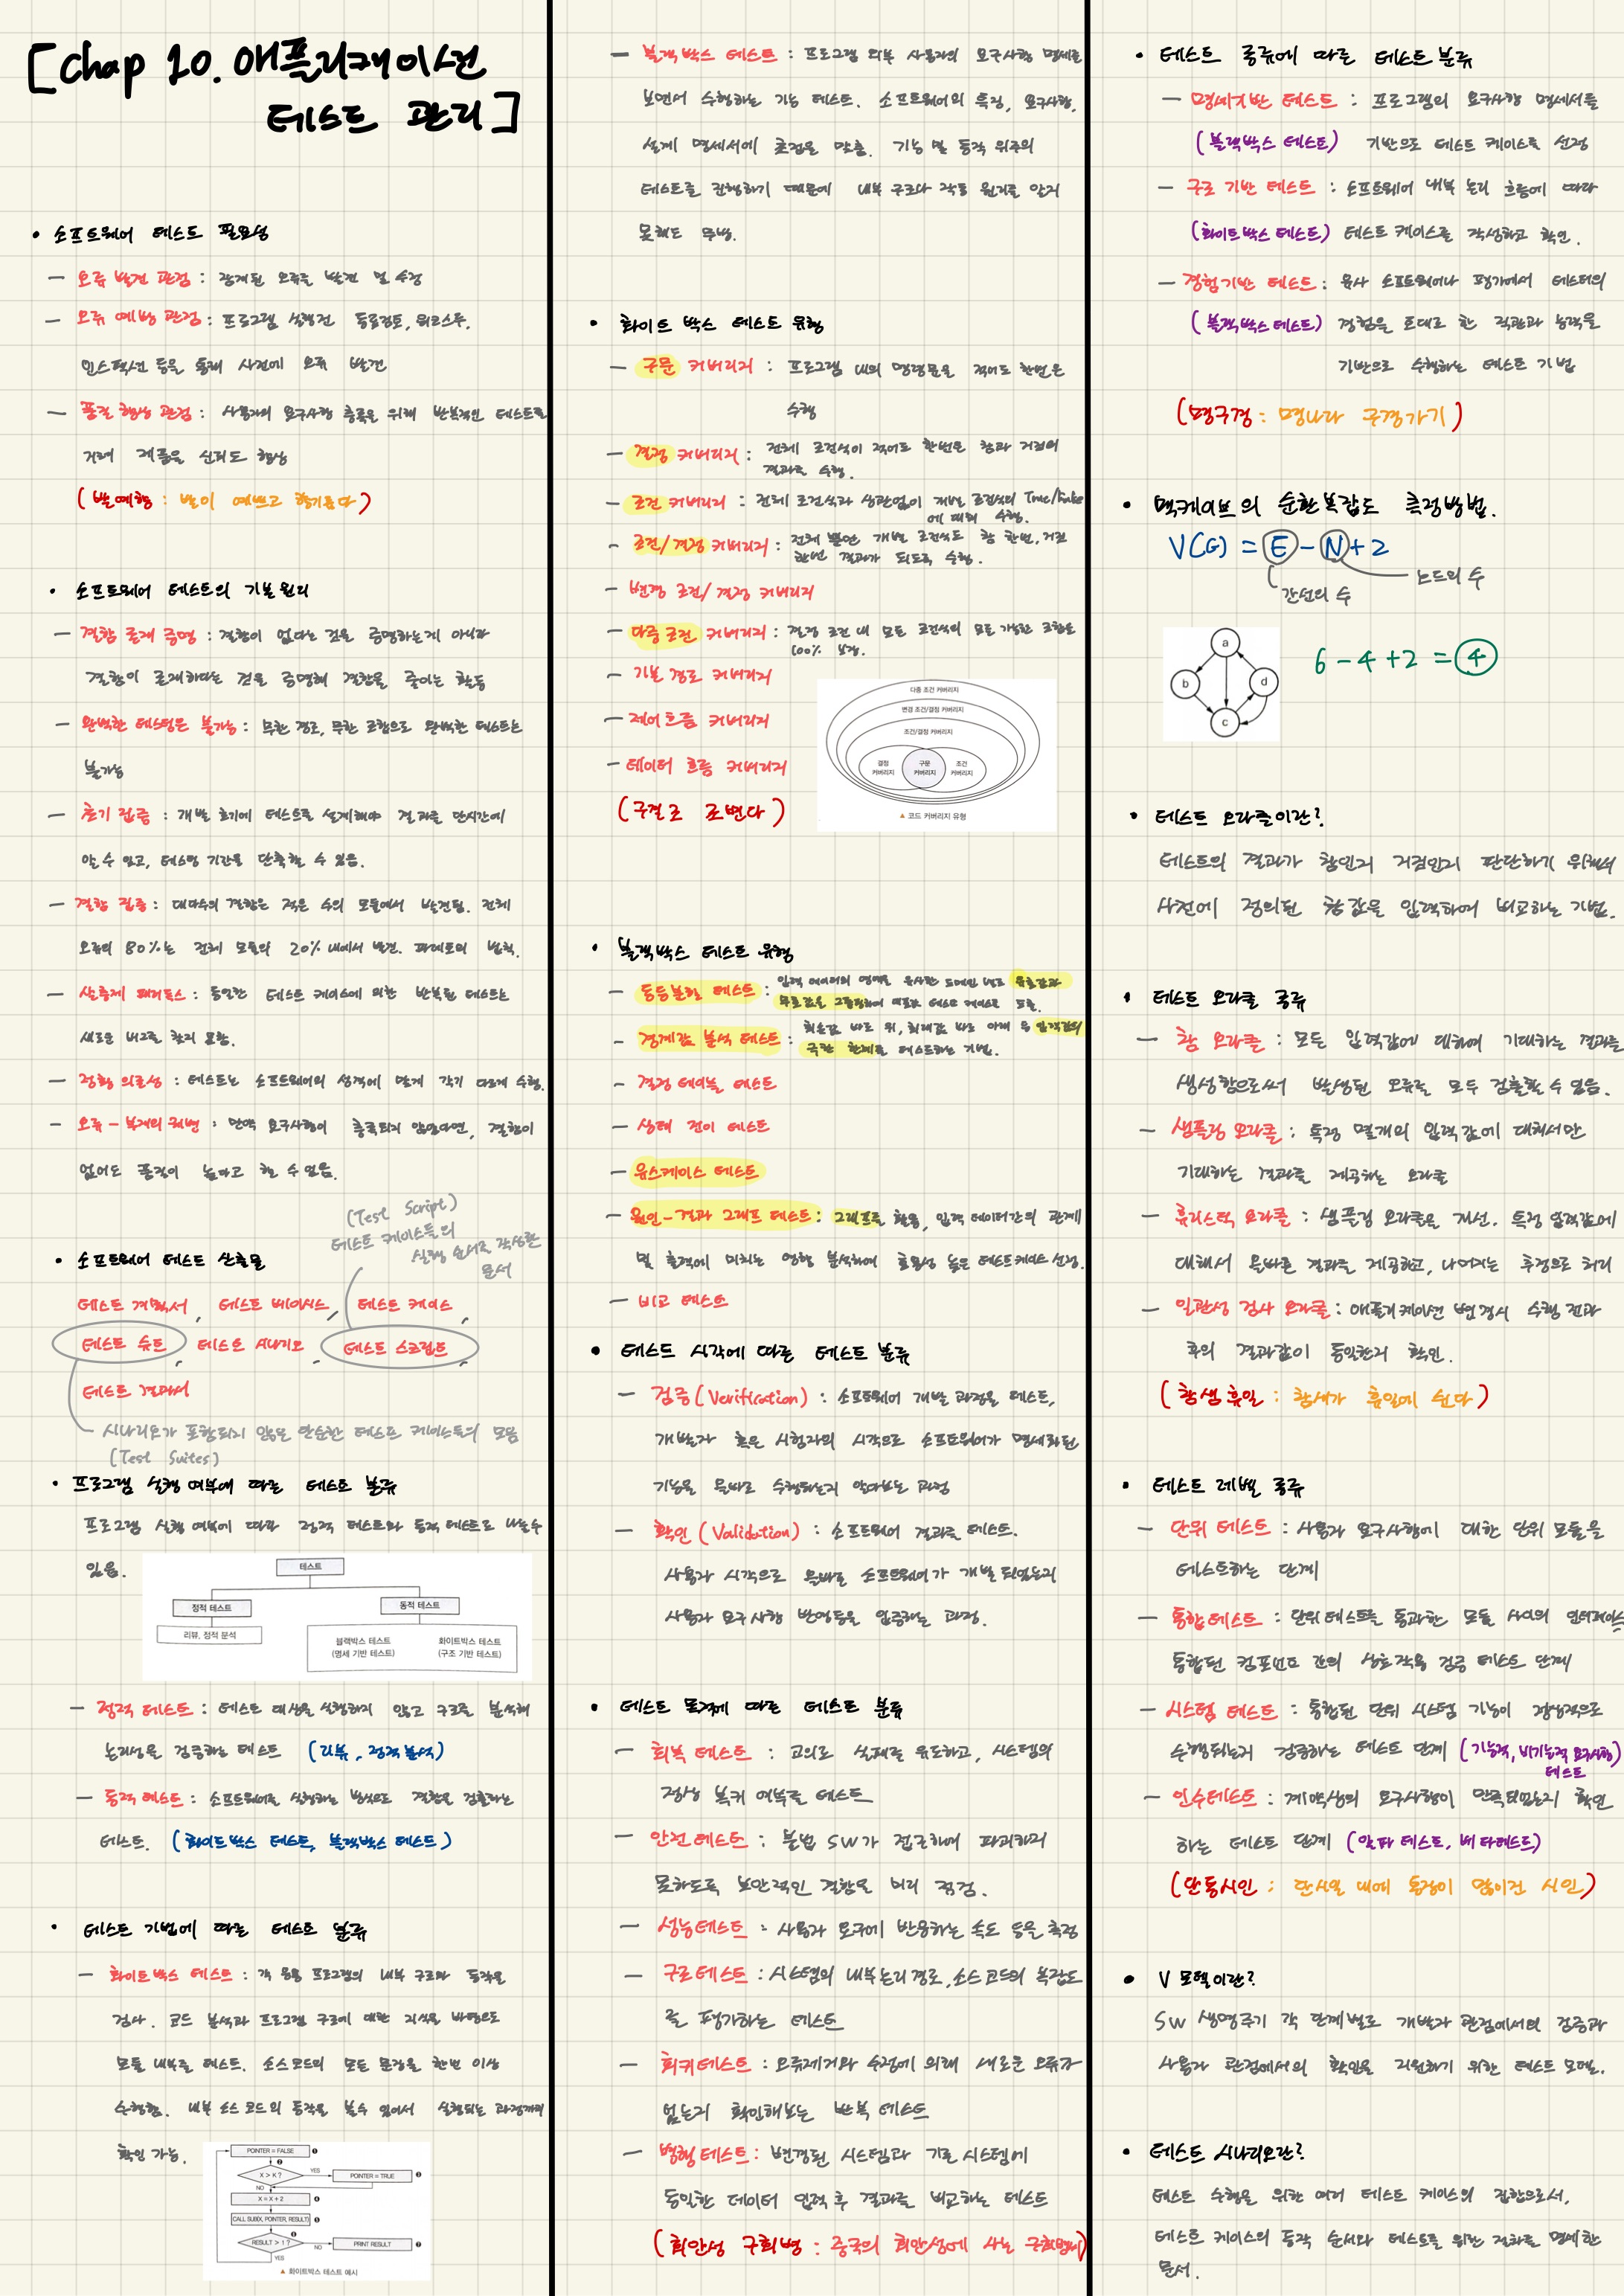 [chap 10. 애플리케이션
테스트 관리]
• 소프트웨어 테스트 필요성
— 오류 발견 관점 : 잠재된 오류를 발견 및 수정
— 오류 예방 관점 : 프로그램 실행전 동료검토, 워크스루,
인스펙션 등을 통해 사전에 오류 발견
— 품질 향상 관점 : 사용자의 요구사항 충족을 위해 반복적인 테스트를
거쳐 제품을 신뢰도 향상
(발예향 : 발이 예쁘고 향기롭다)
• 소프트웨어 테스트의 기본 원리
— 결함 존재 증명 : 결함이 없다는 것을 증명하는게 아니라
결함이 존재하다는 것을 증명해 결함을 줄이는 활동
— 완벽한 테스팅은 불가능 : 무한 경로, 무한 조합으로 완벽한 테스트는
불가능
— 초기 집중 : 개발 초기에 테스트를 설계해야 결과를 단시간에
알 수 있고, 테스팅 기간을 단축할 수 있음.
— 결함 집중 : 대다수의 결함은 적은 수의 모듈에서 발견됨. 전체
오류의 80%는 전체 모듈의 20% 내에서 발견. 파레토의 법칙.
— 살충제 패러독스 : 동일한 테스트 케이스에 의한 반복된 테스트는
새로운 버그를 찾지 못함.
— 정황 의존성 : 테스트는 소프트웨어의 성격에 맞게 각기 다르게 수행.
— 오류-부재의 궤변 : 만약 요구사항이 충족되지 않았다면, 결함이
없어도 품질이 높다고 할 수 없음.
(Test Script)
테스트 케이스들의
실행 순서로 작성한
문서
• 소프트웨어 테스트 산출물
테스트 계획서, 테스트 베이시스, 테스트 케이스,
테스트 슈트, 테스트 시나리오, 테스트 스크립트,
테스트 결과서
시나리오가 포함되지 않은 단순한 테스트 케이스들의 모음
(Test Suites)
• 프로그램 실행 여부에 따른 테스트 분류
프로그램 실행 여부에 따라 정적 테스트와 동적 테스트로 나눌수
있음.
테스트
정적 테스트 동적 테스트
리뷰, 정적 분석
블랙박스 테스트 화이트박스 테스트
(명세 기반 테스트) (구조 기반 테스트)
— 정적 테스트 : 테스트 대상을 실행하지 않고 구조를 분석해
논리성을 검증하는 테스트 (리뷰, 정적분석)
— 동적 테스트 : 소프트웨어를 실행하는 방식으로 결함을 검출하는
테스트. (화이트박스 테스트, 블랙박스 테스트)
• 테스트 기법에 따른 테스트 분류
— 화이트박스 테스트 : 각 응용 프로그램의 내부 구조와 동작을
검사. 코드 분석과 프로그램 구조에 대한 지식을 바탕으로
모듈 내부를 테스트. 소스코드의 모든 문장을 한번 이상
수행함. 내부 소스 코드의 동작을 볼수 있어서 실행되는 과정까지
확인 가능.
POINTER = FALSE ❶
❷
X > K ? YES POINTER = TRUE ❸
NO
X = X + 2 ❹
CALL SUB(X, POINTER, RESULT) ❺
❻
RESULT > 1 ? NO PRINT RESULT ❼
YES
▲ 화이트박스 테스트 예시
— 블랙박스 테스트 : 프로그램 외부 사용자의 요구사항 명세를
보면서 수행하는 기능 테스트. 소프트웨어의 특징, 요구사항,
설계 명세서에 초점을 맞춤. 기능 및 동작 위주의
테스트를 진행하기 때문에 내부 구조나 작동 원리를 알지
못해도 무방.
• 화이트 박스 테스트 유형
— 구문 커버리지 : 프로그램 내의 명령문을 적어도 한번은
수행
— 결정 커버리지 : 전체 조건식이 적어도 한번은 참과 거짓의
결과를 수행.
— 조건 커버리지 : 전체 조건식과 상관없이 개별 조건식의 True/False
에 대해 수행.
— 조건/결정 커버리지 : 전체 뿐만 개별 조건식도 참 한번, 거짓
한번 결과가 되도록 수행.
— 변경 조건/결정 커버리지
— 다중 조건 커버리지 : 결정 조건 내 모든 조건식의 모든 가능한 조합을
100% 보장.
— 기본 경로 커버리지
— 제어 흐름 커버리지
— 데이터 흐름 커버리지
(구결조 조변다)
다중 조건 커버리지
변경 조건/결정 커버리지
조건/결정 커버리지
결정 커버리지 구문 커버리지 조건 커버리지
▲ 코드 커버리지 유형
• 블랙박스 테스트 유형
— 동등분할 테스트 : 입력 데이터의 영역을 유사한 도메인 별로 유효값과
무효값을 그룹핑하여 대표값 테스트 케이스를 도출.
— 경계값 분석 테스트 : 최솟값 바로 위, 최대값 바로 아래 등 입력값의
극한 한계를 테스트하는 기법.
— 결정 테이블 테스트
— 상태 전이 테스트
— 유스케이스 테스트
— 원인-결과 그래프 테스트 : 그래프를 활용, 입력 데이터간의 관계
및 출력에 미치는 영향 분석하여 효용성 높은 테스트케이스 선정.
— 비교 테스트
• 테스트 시각에 따른 테스트 분류
— 검증(Verification) : 소프트웨어 개발 과정을 테스트,
개발자 혹은 시험자의 시각으로 소프트웨어가 명세화된
기능을 올바로 수행하는지 알아보는 과정
— 확인(Validation) : 소프트웨어 결과를 테스트.
사용자 시각으로 올바로 소프트웨어가 개발 되었는지
사용자 요구 사항 반영등을 입증하는 과정.
• 테스트 목적에 따른 테스트 분류
— 회복 테스트 : 고의로 실패를 유도하고, 시스템의
정상 복귀 여부를 테스트
— 안전 테스트 : 불법 SW가 접근하여 파괴하지
못하도록 보안적인 결함을 미리 점검.
— 성능테스트 : 사용자 요구에 반응하는 속도 등을 측정
— 구조테스트 : 시스템의 내부논리 경로, 소스코드의 복잡도
를 평가하는 테스트
— 회귀테스트 : 오류제거와 수정에 의해 새로운 오류가
없는지 확인해보는 반복 테스트
— 병행테스트 : 변경된 시스템과 기존 시스템에
동일한 데이터 입력 후 결과를 비교하는 테스트
(회안성 구회병 : 중국의 회안성에 사는 구회병이)
• 테스트 종류에 따른 테스트 분류
— 명세기반 테스트 : 프로그램의 요구사항 명세서를
(블랙박스 테스트) 기반으로 테스트 케이스를 선정
— 구조 기반 테스트 : 소프트웨어 내부 논리 흐름에 따라
(화이트박스 테스트) 테스트 케이스를 작성하고 확인.
— 경험기반 테스트 : 유사 소프트웨어나 평가에서 테스터의
(블랙박스 테스트) 경험을 토대로 한 직관과 능력을
기반으로 수행하는 테스트 기법
(명구경 : 명나라 구경가기)
• 맥케이브의 순환복잡도 측정방법.
V(G) = E - N + 2
간선의 수 노드의 수
a
b d
c
6 - 4 + 2 = 4
• 테스트 오라클이란?
테스트의 결과가 참인지 거짓인지 판단하기 위해서
사전에 정의된 참값을 입력하여 비교하는 기법.
• 테스트 오라클 종류
— 참 오라클 : 모든 입력값에 대하여 기대하는 결과를
생성함으로써 발생된 오류를 모두 검출할 수 있음.
— 샘플링 오라클 : 특정 몇개의 입력값에 대해서만
기대하는 결과를 제공하는 오라클
— 휴리스틱 오라클 : 샘플링 오라클을 개선. 특정 입력값에
대해서 올바른 결과를 제공하고, 나머지는 추정으로 처리
— 일관성 검사 오라클 : 애플리케이션 변경시 수행 전과
후의 결과값이 동일한지 확인.
(참샘휴일 : 참새가 휴일에 쉰다)
• 테스트 레벨 종류
— 단위 테스트 : 사용자 요구사항에 대한 단위 모듈을
테스트하는 단계
— 통합테스트 : 단위 테스트를 통과한 모듈 사이의 인터페이스,
통합된 컴포넌트 간의 상호작용 검증 테스트 단계
— 시스템 테스트 : 통합된 단위 시스템 기능이 정상적으로
수행되는지 검증하는 테스트 단계 (기능적, 비기능적 요구사항)
테스트
— 인수테스트 : 계약상의 요구사항이 만족되었는지 확인
하는 테스트 단계 (알파 테스트, 베타테스트)
(단통시인 : 단시일 내에 통장이 많이진 시인)
• V 모델이란?
SW 생명주기 각 단계별로 개발자 관점에서의 검증과
사용자 관점에서의 확인을 지원하기 위한 테스트 모델.
• 테스트 시나리오란?
테스트 수행을 위한 여러 테스트 케이스의 집합으로서,
테스트 케이스의 동작 순서와 테스트를 위한 절차를 명세한
문서.